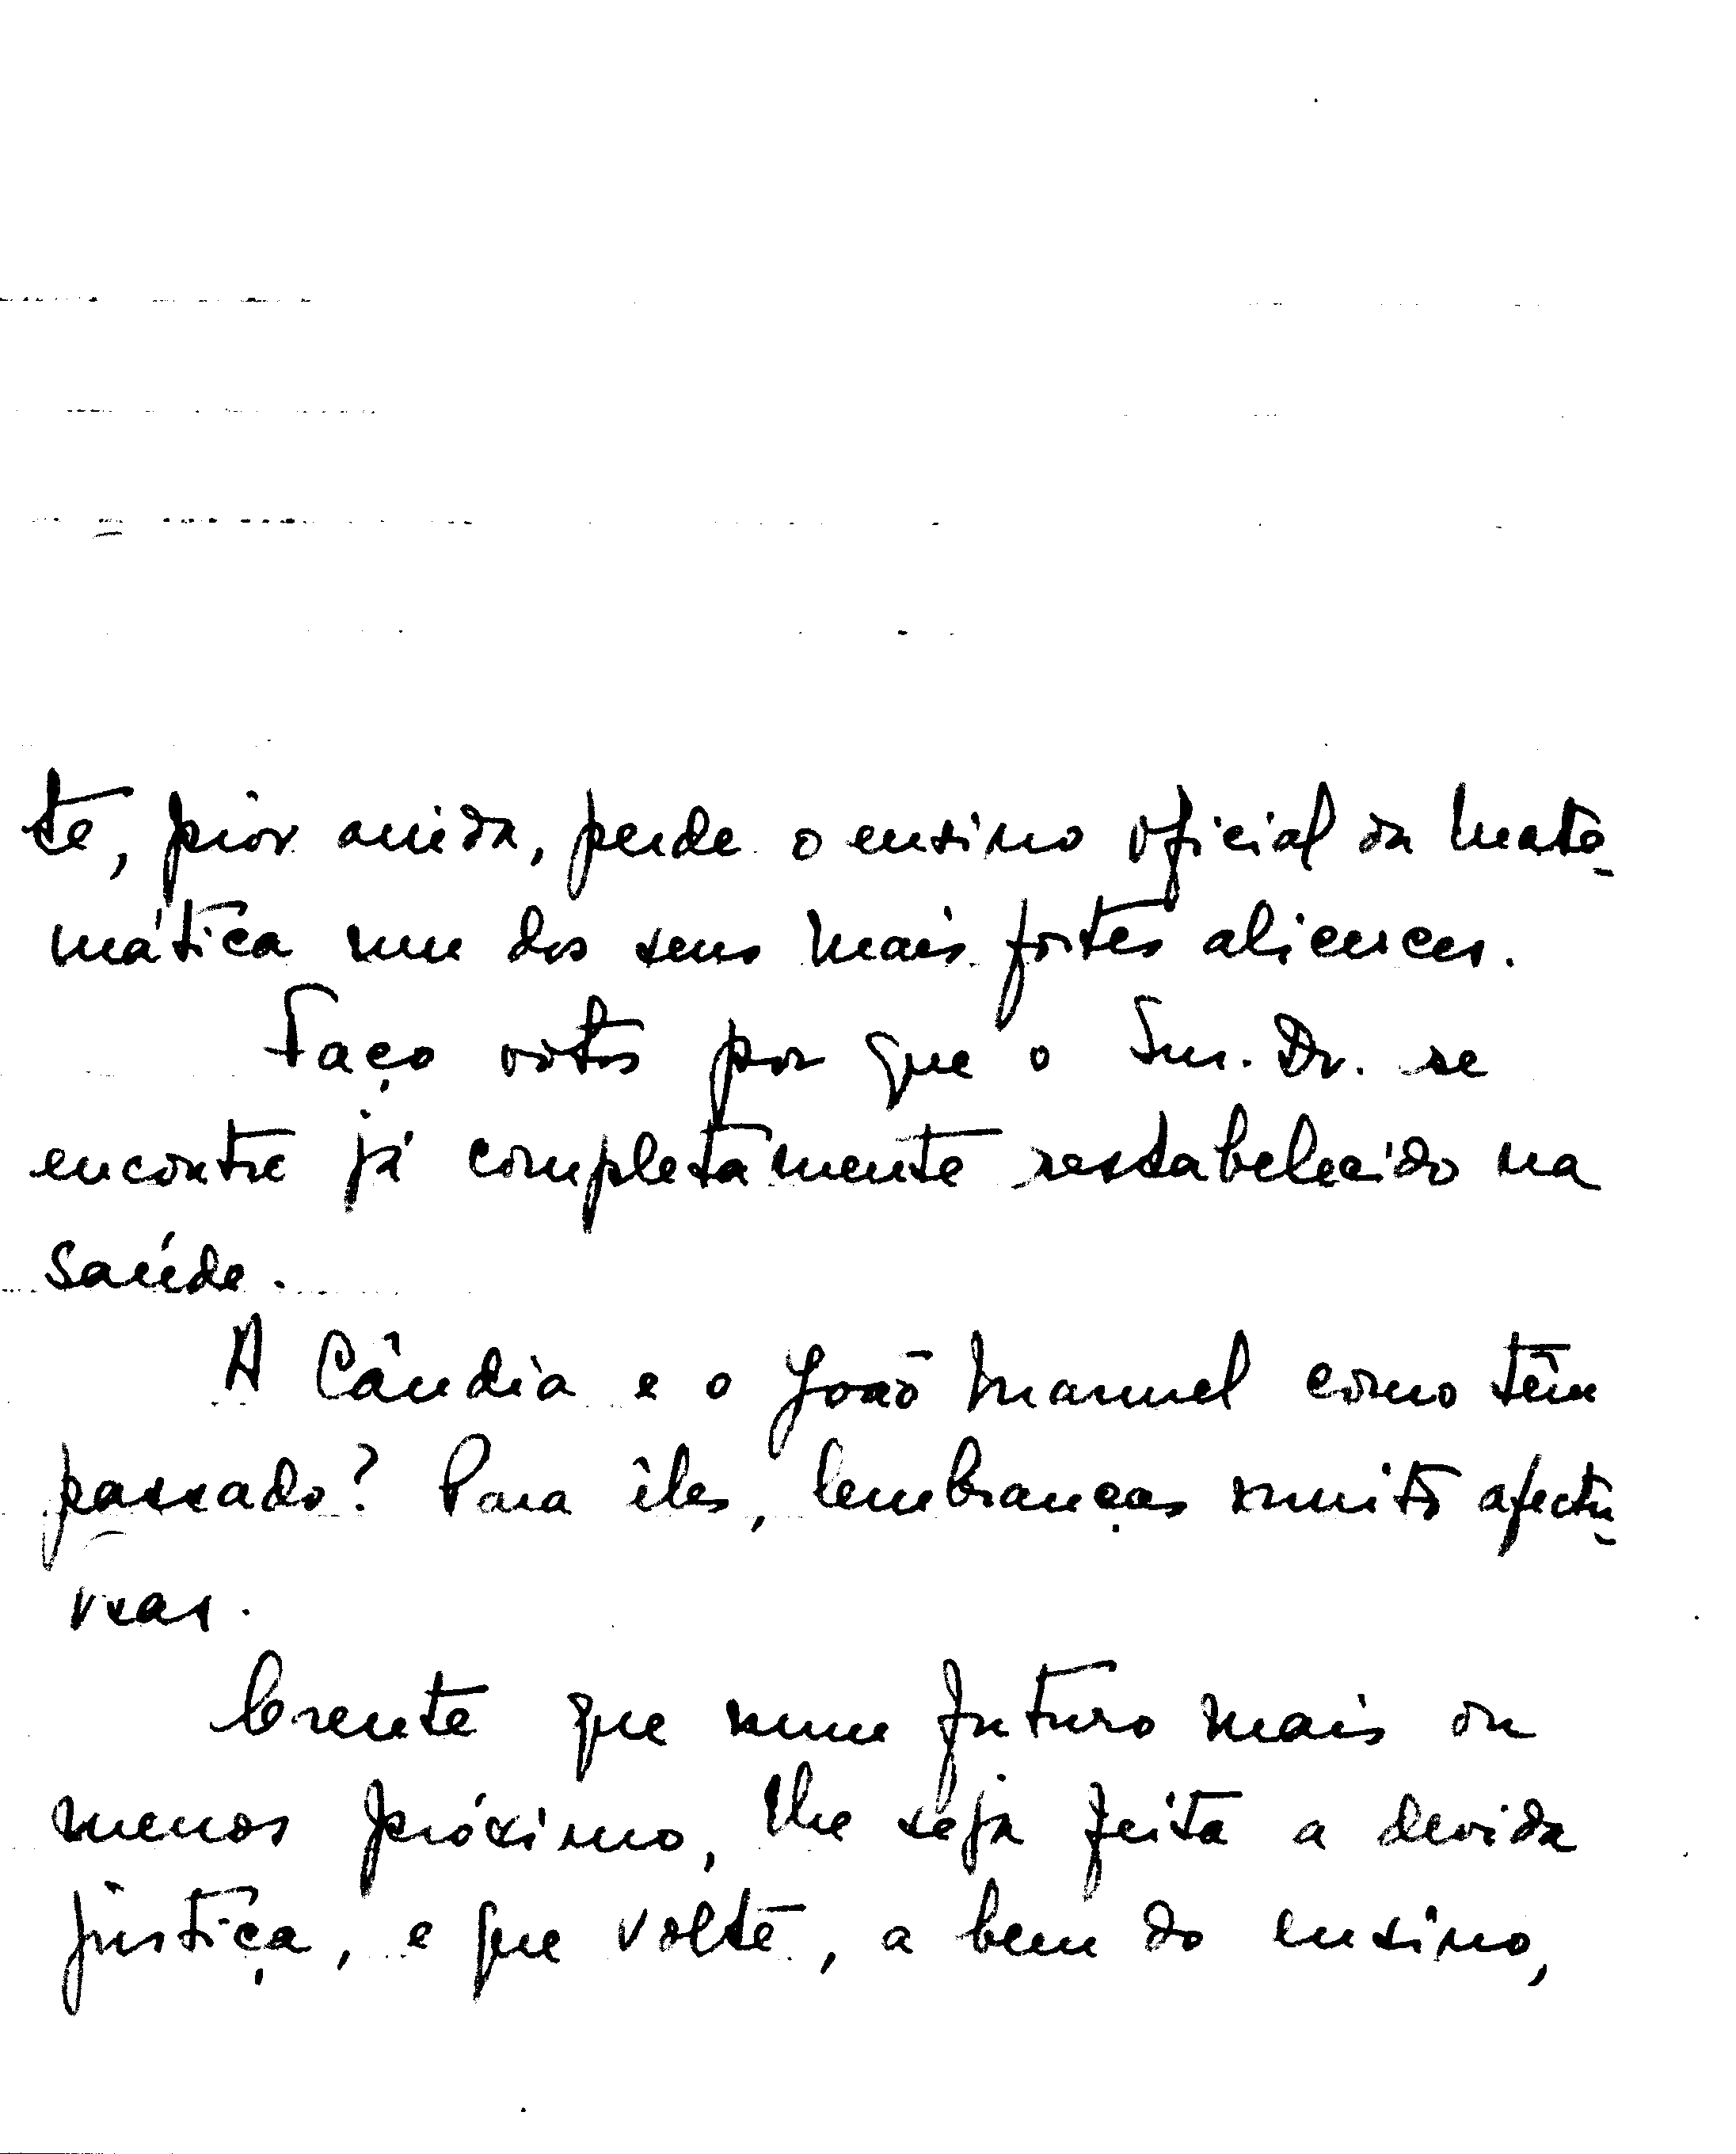 te, pior ainda, perde o ensino oficial da Mate-
mática um dos seus mais fortes alicerces.
Faço votos por que o Snr. Dr. se
encontre já completamente restabelecido na
saúde.
A Cândia e o João Manuel como têm
passado? Para êles, lembranças muito afectu-
osas.
Crente que num futuro mais ou
menos próximo, lhe seja feita a devida
justiça, e que volte, a bem do ensino,